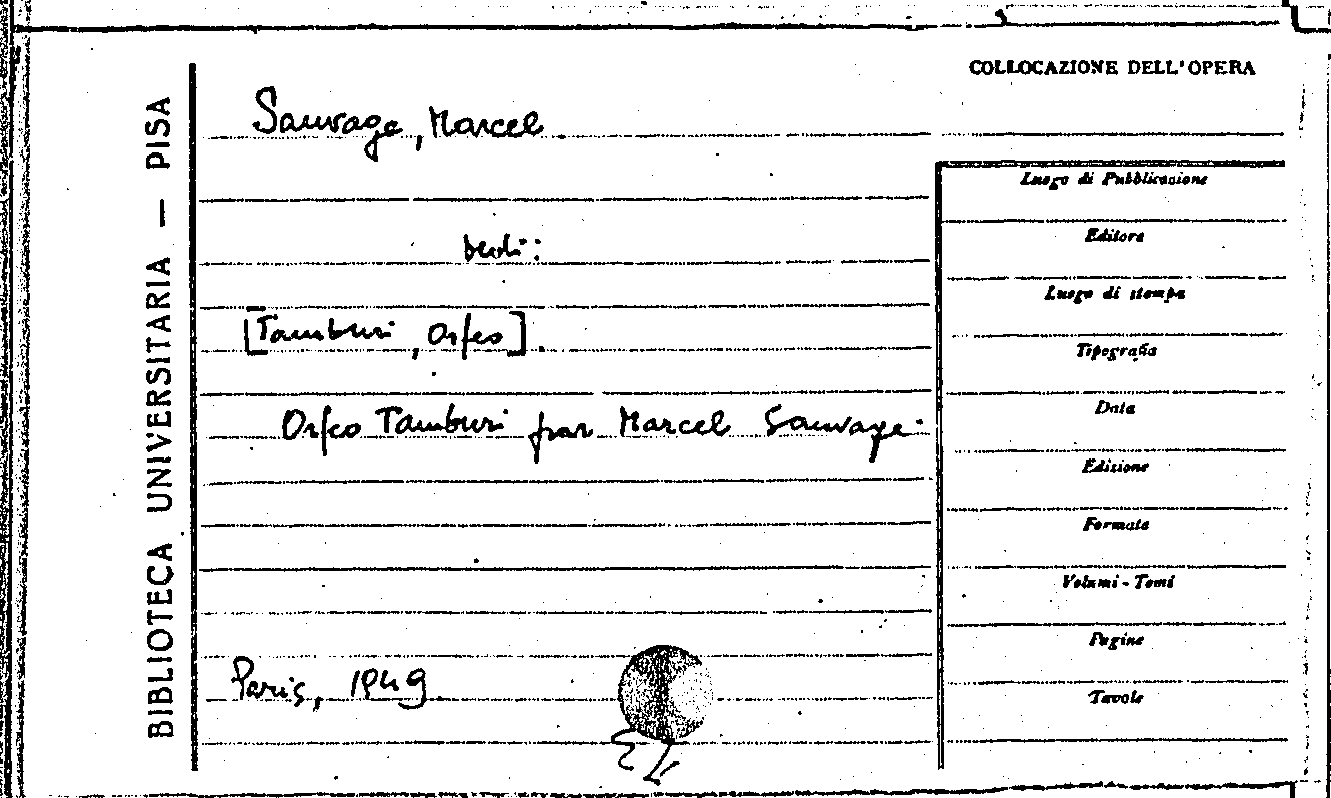 BIBLIOTECA UNIVERSITARIA — PISA
COLLOCAZIONE DELL'OPERA
Sauvage, Marcel.
vedi:
[Tamburi, Orfeo].
Orfeo Tamburi par Marcel Sauvage.
Paris, 1949.
Luogo di Pubblicazione
Editore
Luogo di stampa
Tipografia
Data
Edizione
Formato
Volumi - Tomi
Pagine
Tavole